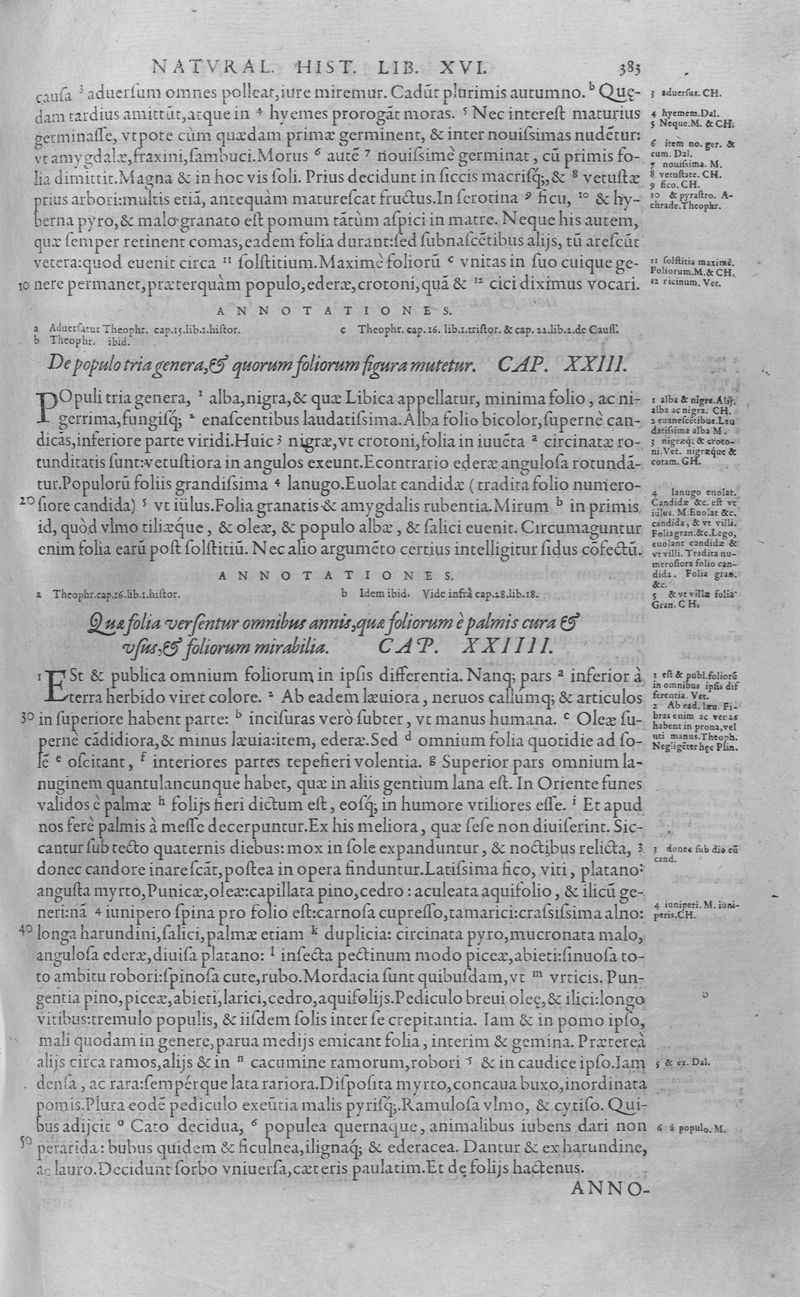 NATVRAL. HIST. LIB. XVI. 383
cauſa ³ aduerſum omnes polleat, iure miremur. Cadũt plurimis autumno. ᵇ Quę-
dam tardius amittũt, atque in ⁴ hyemes prorogãt moras. ⁵ Nec intereſt maturius
germinaſſe, vtpote cùm quædam primæ germinent, & inter nouiſsimas nudẽtur:
vt amygdalæ, fraxini, ſambuci. Morus ⁶ autẽ ⁷ nouiſsimè germinat, cũ primis fo-
lia dimittit. Magna & in hoc vis ſoli. Prius decidunt in ſiccis macriſq;, & ⁸ vetuſtæ
prius arbori: multis etiã, antequàm matureſcat fructus. In ſerotina ⁹ ficu, ¹⁰ & hy-
berna pyro, & malo granato eſt pomum tãtùm aſpici in matre. Neque his autem,
quæ ſemper retinent comas, eadem folia durant: ſed ſubnaſcẽtibus alijs, tũ areſcũt
vetera: quod euenit circa ¹¹ ſolſtitium. Maximè foliorũ ᶜ vnitas in ſuo cuique ge-
10 nere permanet, præterquàm populo, ederæ, crotoni, quã & ¹² cici diximus vocari.
3 aduerſus. CH.
4 hyemem. Dal.
5 Neque. M. & CH.
6 item no. ger. &
cum. Dal.
7 nouiſsima. M.
8 vetuſtate. CH.
9 fico. CH.
10 & pyraſtro. A-
chrade. Theophr.
11 ſolſtitia maximè.
Foliorum. M. & CH.
12 ricinum. Vet.
ANNOTATIONES.
a Aduerſatur Theophr. cap. 15. lib. 1. hiſtor.
b Theophr. ibid.
c Theophr. cap. 16. lib. 1. triſtor. & cap. 22. lib. 2. de Cauſſ.
De populo tria genera, & quorum foliorum figura mutetur. CAP. XXIII.
POpuli tria genera, ¹ alba, nigra, & quæ Libica appellatur, minima folio, ac ni-
gerrima, fungiſq; ² enaſcentibus laudatiſsima. Alba folio bicolor, ſupernè can-
dicãs, inferiore parte viridi. Huic ³ nigræ, vt crotoni, folia in iuuẽta ᵃ circinatæ ro-
tunditatis ſunt: vetuſtiora in angulos exeunt. E contrario ederæ anguloſa rotundã-
tur. Populorũ foliis grandiſsima ⁴ lanugo. Euolat candidæ (tradita folio numero-
20 ſiore candida) ⁵ vt iülus. Folia granatis & amygdalis rubentia. Mirum ᵇ in primis
id, quòd vlmo tiliæque, & oleæ, & populo albæ, & ſalici euenit. Circumaguntur
enim folia earũ poſt ſolſtitiũ. Nec alio argumẽto certius intelligitur ſidus cõfectũ.
1 alba & nigra. Alij.
alba ac nigra. CH.
2 euaneſcẽtibus. Lau
datiſsima alba M.
3 nigræq; & croto-
ni. Vet. nigræque &
cotam. GH.
4 lanugo euolat.
Candidæ &c. eſt vt
iülus. M. Euolat &c.
candida, & vt villi.
Folia gran. &c. Lego,
euolant candidæ &
vt villi. Tradita nu-
meroſiora folio can-
dida. Folia gran.
&c.
5 & vt villæ folia
Gran. CH.
ANNOTATIONES.
a Theophr. cap. 16. lib. 1. hiſtor.
b Idem ibid. Vide infrà cap. 28. lib. 18.
Quæ folia verſentur omnibus annis, quæ foliorum è palmis cura &
vſus, & foliorum mirabilia. CAP. XXIIII.
¹ ESt & publica omnium foliorum in ipſis differentia. Nanq; pars ᵃ inferior à
terra herbido viret colore. ² Ab eadem læuiora, neruos callumq; & articulos
30 in ſuperiore habent parte: ᵇ inciſuras verò ſubter, vt manus humana. ᶜ Oleæ ſu-
pernè cãdidiora, & minus læuia: item, ederæ. Sed ᵈ omnium folia quotidie ad ſo-
lẽ ᵉ oſcitant, ᶠ interiores partes tepefieri volentia. ᵍ Superior pars omnium la-
nuginem quantulancunque habet, quæ in aliis gentium lana eſt. In Oriente funes
validos è palmæ ʰ folijs fieri dictum eſt, eoſq; in humore vtiliores eſſe. ⁱ Et apud
nos ferè palmis à meſſe decerpuntur. Ex his meliora, quæ ſeſe non diuiſerint. Sic-
cantur ſub tecto quaternis diebus: mox in ſole expanduntur, & noctibus relicta, ³
donec candore inareſcãt, poſtea in opera finduntur. Latiſsima fico, viti, platano:
anguſta myrto, Punicæ, oleæ: capillata pino, cedro: aculeata aquifolio, & ilicũ ge-
neri: nã ⁴ iunipero ſpina pro folio eſt: carnoſa cupreſſo, tamarici: craſsiſsima alno:
40 longa harundini, ſalici, palmæ etiam ᵏ duplicia: circinata pyro, mucronata malo,
anguloſa ederæ, diuiſa platano: ˡ inſecta pectinum modo piceæ, abieti: ſinuoſa to-
to ambitu robori: ſpinoſa cute, rubo. Mordacia ſunt quibuſdam, vt ᵐ vrticis. Pun-
gentia pino, piceæ, abieti, larici, cedro, aquifolijs. Pediculo breui oleę, & ilici: longo
vitibus: tremulo populis, & iiſdem ſolis inter ſe crepitantia. Iam & in pomo ipſo,
mali quodam in genere, parua medijs emicant folia, interim & gemina. Præterea
alijs circa ramos, alijs & in ⁿ cacumine ramorum, robori ⁵ & in caudice ipſo. Iam
denſa, ac rara: ſempérque lata rariora. Diſpoſita myrto, concaua buxo, inordinata
pomis. Plura eodẽ pediculo exeũtia malis pyriſq;. Ramuloſa vlmo, & cytiſo. Qui-
bus adijcit ᵒ Cato decidua, ⁶ populea quernaque, animalibus iubens dari non
50 perarida: bubus quidem & ficulnea, ilignaq; & ederacea. Dantur & ex harundine,
ac lauro. Decidunt ſorbo vniuerſa, cæteris paulatim. Et de folijs hactenus.
1 eſt & publ. foliorũ
in omnibus ipſis dif
ferentia. Vet.
2 Ab ead. læu. Fi-
bras enim ac venas
habent in prona, vel
uti manus. Theoph.
Negligẽter hęc Plin.
3 donec ſub dio cũ
cand.
4 iuniperi. M. iuni-
peris. CH.
5 & ex. Dal.
6 à populo. M.
ANNO-